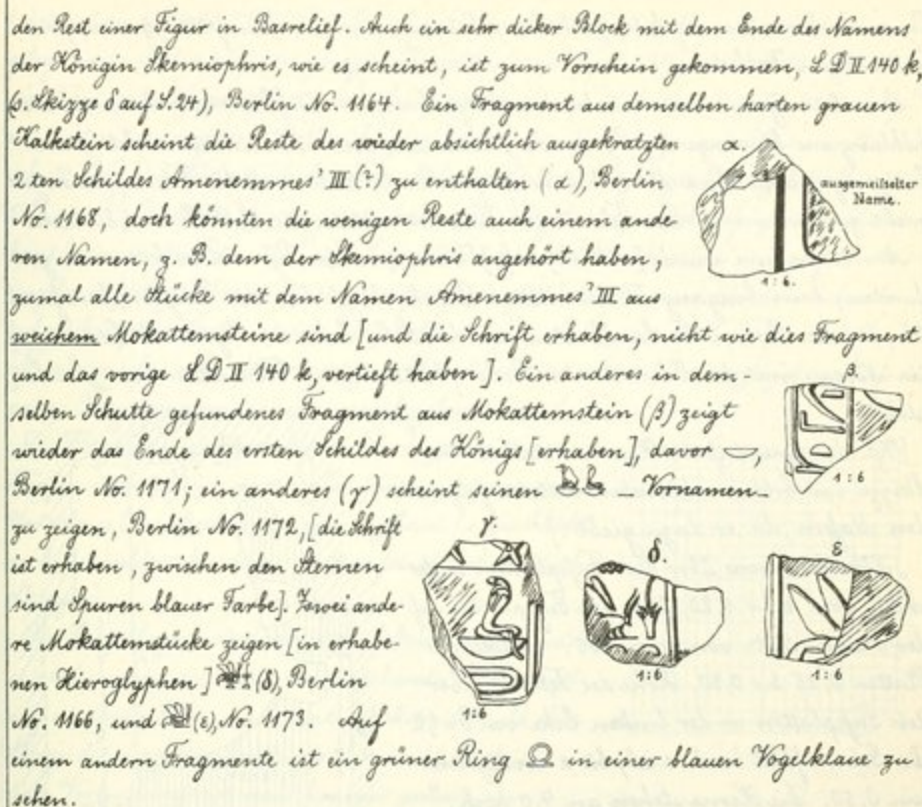 den Rest einer Figur in Basrelief. Auch ein sehr dicker Block mit dem Ende des Namens
der Königin Skemiophris, wie es scheint, ist zum Vorschein gekommen, L D II 140 k,
(s. Skizze δ auf S. 24), Berlin No. 1164. Ein Fragment aus demselben harten grauen
Kalkstein scheint die Reste des wieder absichtlich ausgekratzten
α.
2 ten Schildes Amenemmes' III (?) zu enthalten (α), Berlin
ausgemeißelter
Name.
No. 1168, doch könnten die wenigen Reste auch einem ande-
ren Namen, z. B. dem der Skemiophris angehört haben,
1:6.
zumal alle Stücke mit dem Namen Amenemmes' III aus
weichem Mokattemsteine sind [und die Schrift erhaben, nicht wie dies Fragment
und das vorige L D II 140 k, vertieft haben]. Ein anderes in dem-
β.
selben Schutte gefundenes Fragment aus Mokattemstein (β) zeigt
wieder das Ende des ersten Schildes des Königs [erhaben], davor,
1:6
Berlin No. 1171; ein anderes (γ) scheint seinen – Vornamen –
zu zeigen, Berlin No. 1172, [die Schrift
γ. δ ε
ist erhaben, zwischen den Sternen
sind Spuren blauer Farbe]. Zwei ande-
re Mokattemstücke zeigen [in erhabe-
nen Hieroglyphen] (δ), Berlin
1:6 1:6
No. 1166, und (ε), No. 1173. Auf
1:6
einem andern Fragmente ist ein grüner Ring in einer blauen Vogelklaue zu
sehen.